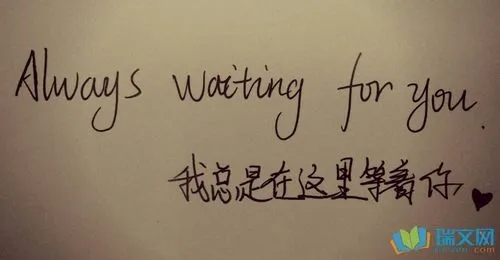 Always waiting for you.
我总是在这里等着你
瑞文网